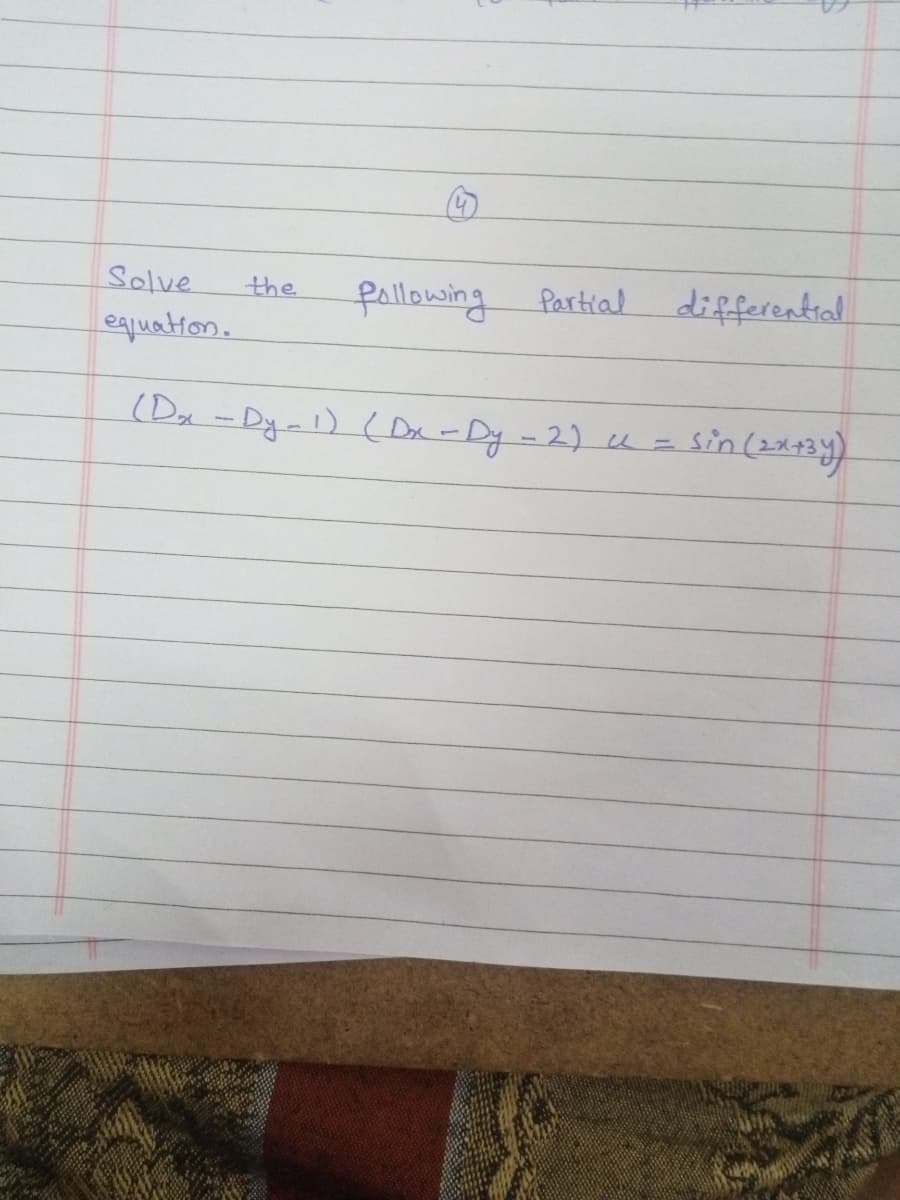 ④
Solve the following Partial differential
equation.
(Dx - Dy - 1) (Dx - Dy - 2) u = sin (2x+3y)